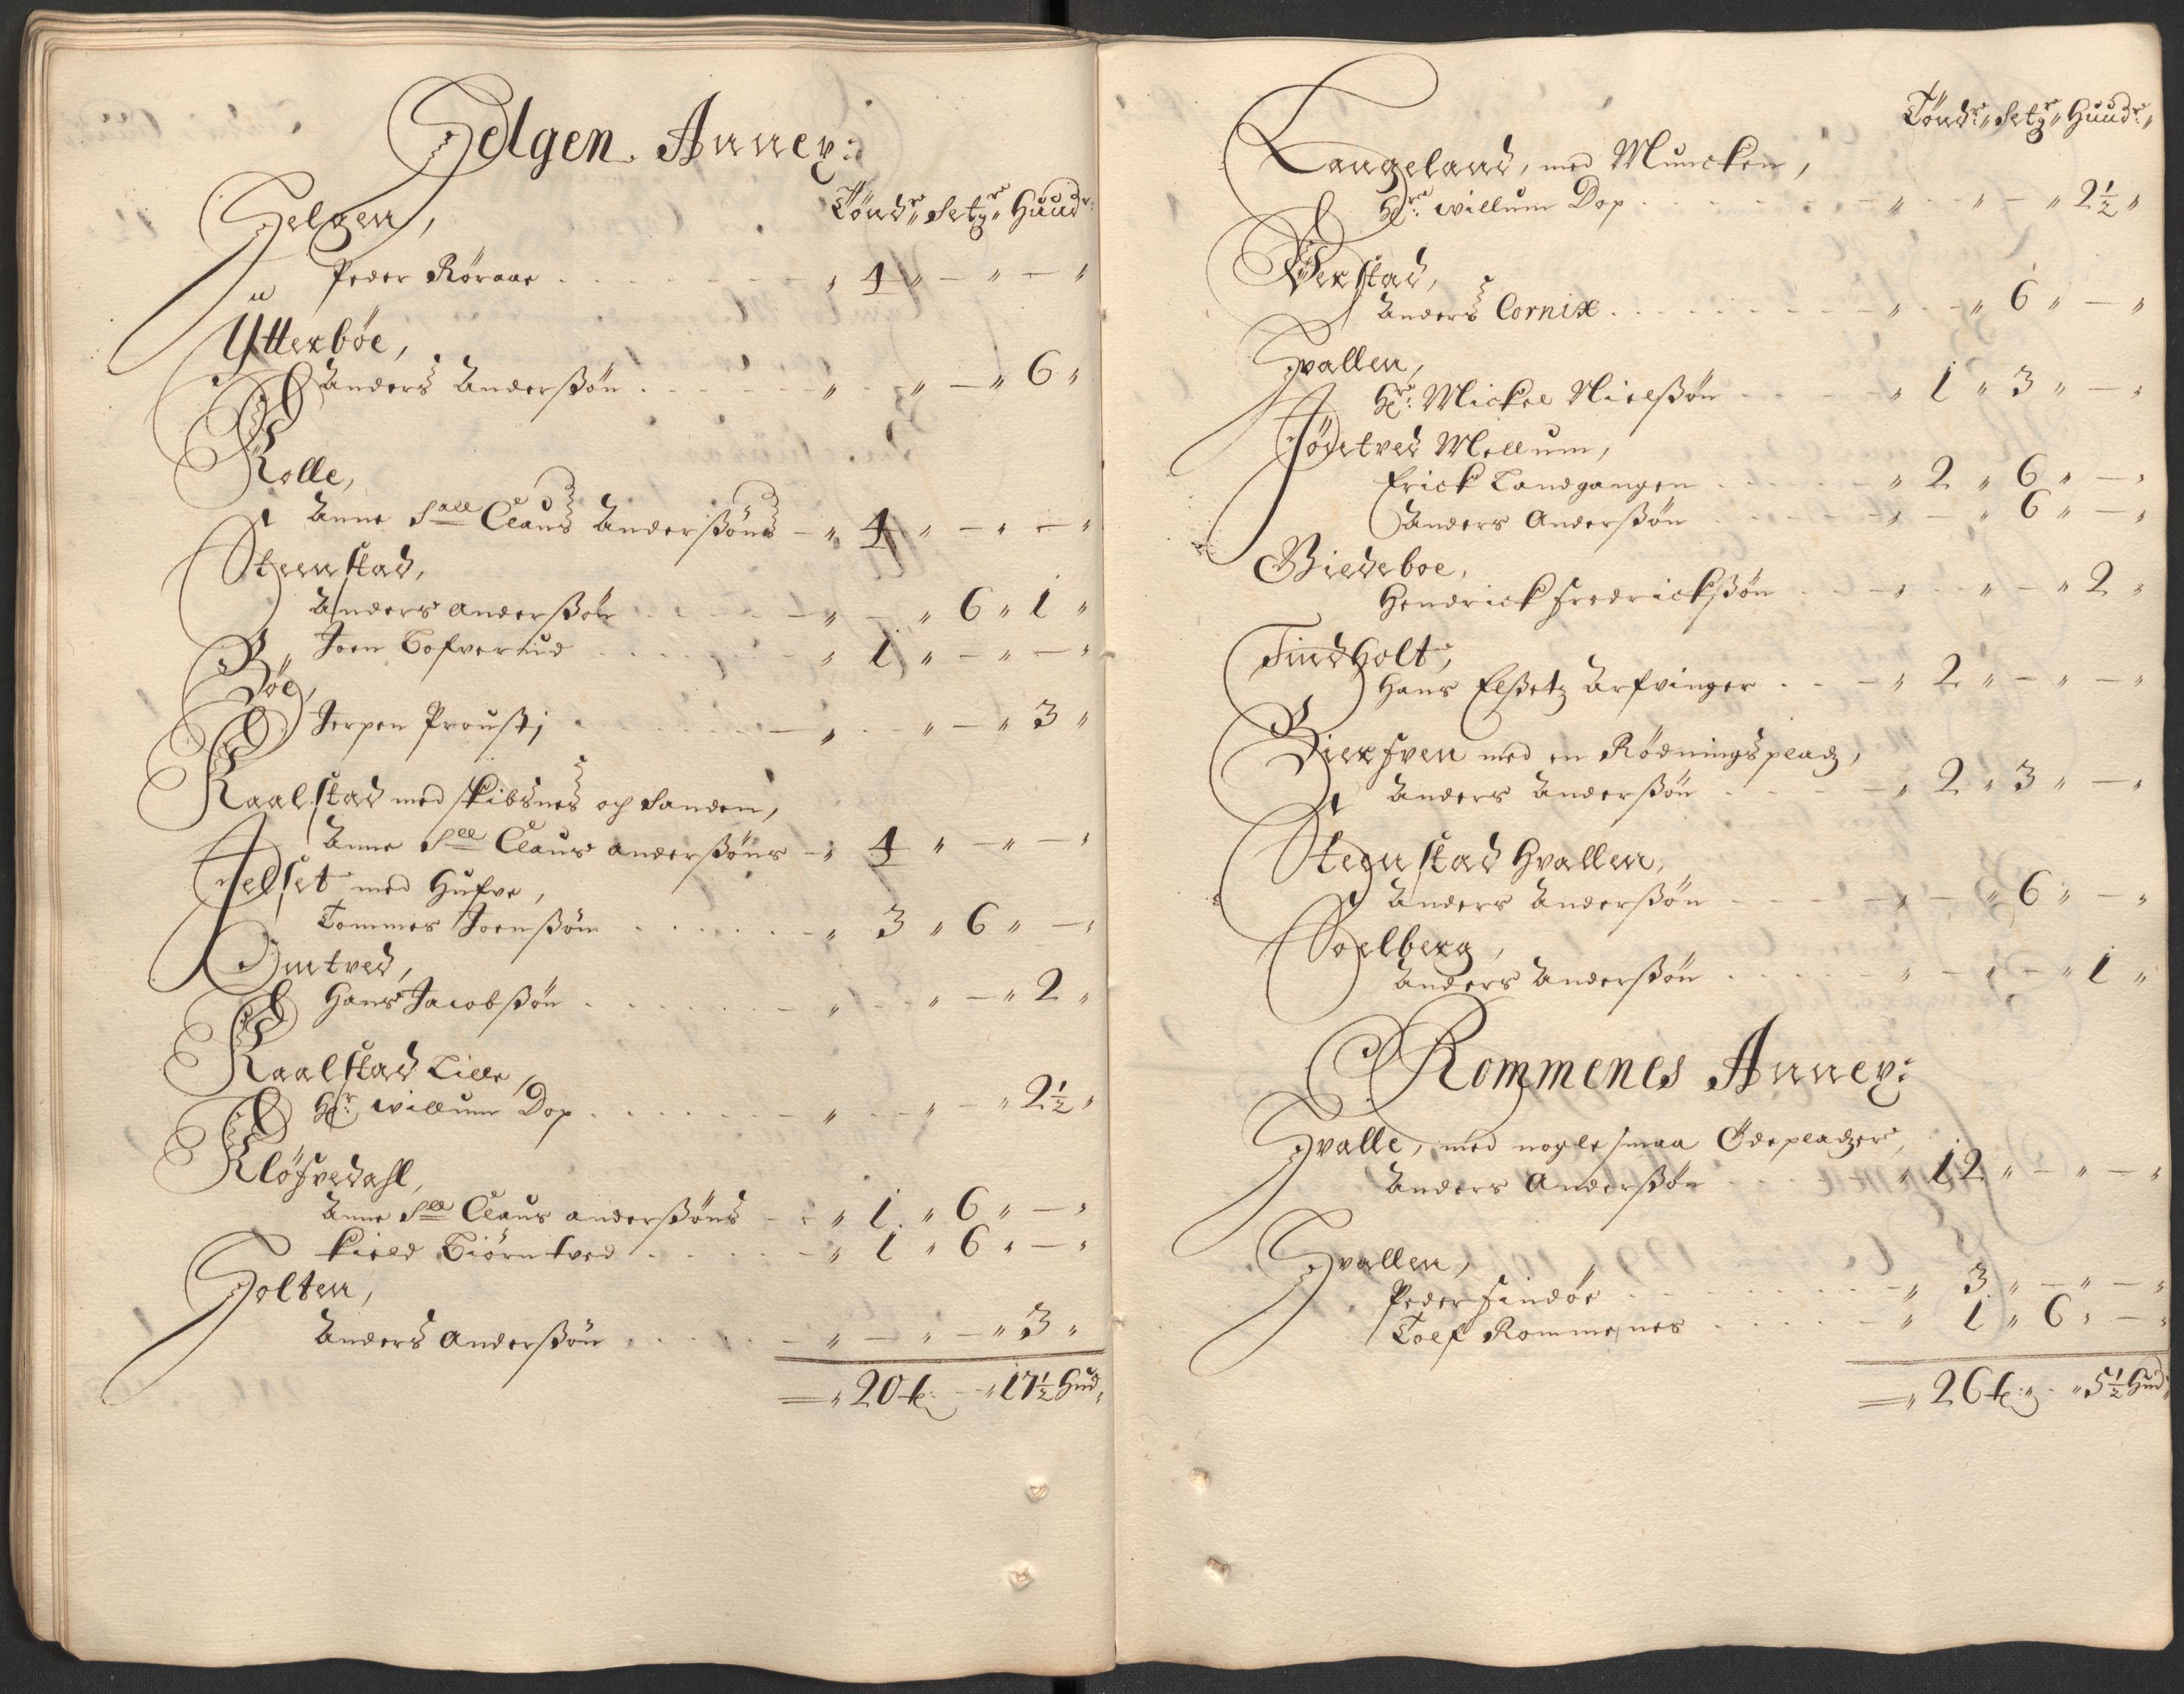 Helgen Annex:
Tønd: Setg: Huud:
Helgen,
Peder Røraae . . . . " 4 " — " — "
Ytterbøe,
Anders Anderßøn . . . . " . " — " 6 "
Kolle,
Anne Sall Claus Anderßøns — " 4 " — " — "
Steenstad,
Anders Anderßøn . . . . " — " 6 " 1 "
Joen Tofverud . . . . " 1 " — " — "
Bøe,
Jerpen Proustj . . . . " . " — " 3 "
Kaalstad med skibsnes och Sanden,
Anne Sll Claus Anderßøns — " 4 " — " — "
Jelset med Hufve,
Tommes Joenßøn . . . . " 3 " 6 " — "
Omtved,
Hans Jacobßøn . . . . " . " — " 2 "
Kaalstad Lille,
Hr: willum Dop . . . . " . " — " 2½ "
Kløfvedahl,
Anne Sll Claus anderßøns . . " 1 " 6 " — "
Kield Tiørntved . . . . " 1 " 6 " — "
Holten,
Anders Anderßøn . . . . " — " — " 3 "
= " 20 t: — " 17½ Hud,
Tønd: Setg: Huud:
Langeland, med Muncken,
Hr: willum Dop . . . . " . " — " 2½ "
Verstad,
Anders Cornix . . . . " . " 6 " — "
Hvallen,
Hr: Mickel Nielßøn . . . . " 1 " 3 " — "
Jøntved Mellum,
Erick Landgangen . . . . " 2 " 6 " — "
Anders Anderßøn . . . . " — " 6 " — "
Biedeboe,
Hendrick Fredrickßøn . . . . " . " — " 2 "
Findholt,
Hans Elßetz Arfvinger . . . — " 2 " — " — "
Bierfven med en Rødningspladz,
Anders Anderßøn . . . . " 2 " 3 " — "
Steenstad Hvallen,
Anders Anderßøn . . . . " — " 6 " — "
Soelberg,
Anders Anderßøn . . . . " — " — " 1 "
Rommenes Annex:
Hvalle, med nogle smaa Ødepladzer,
Anders Anderßøn . . . . " 12 " — " — "
Hvallen,
Peder Findøe . . . . " 3 " — " — "
Toef Rommenes . . . . " 1 " 6 " — "
= " 26 t: " . " 5½ Hud,